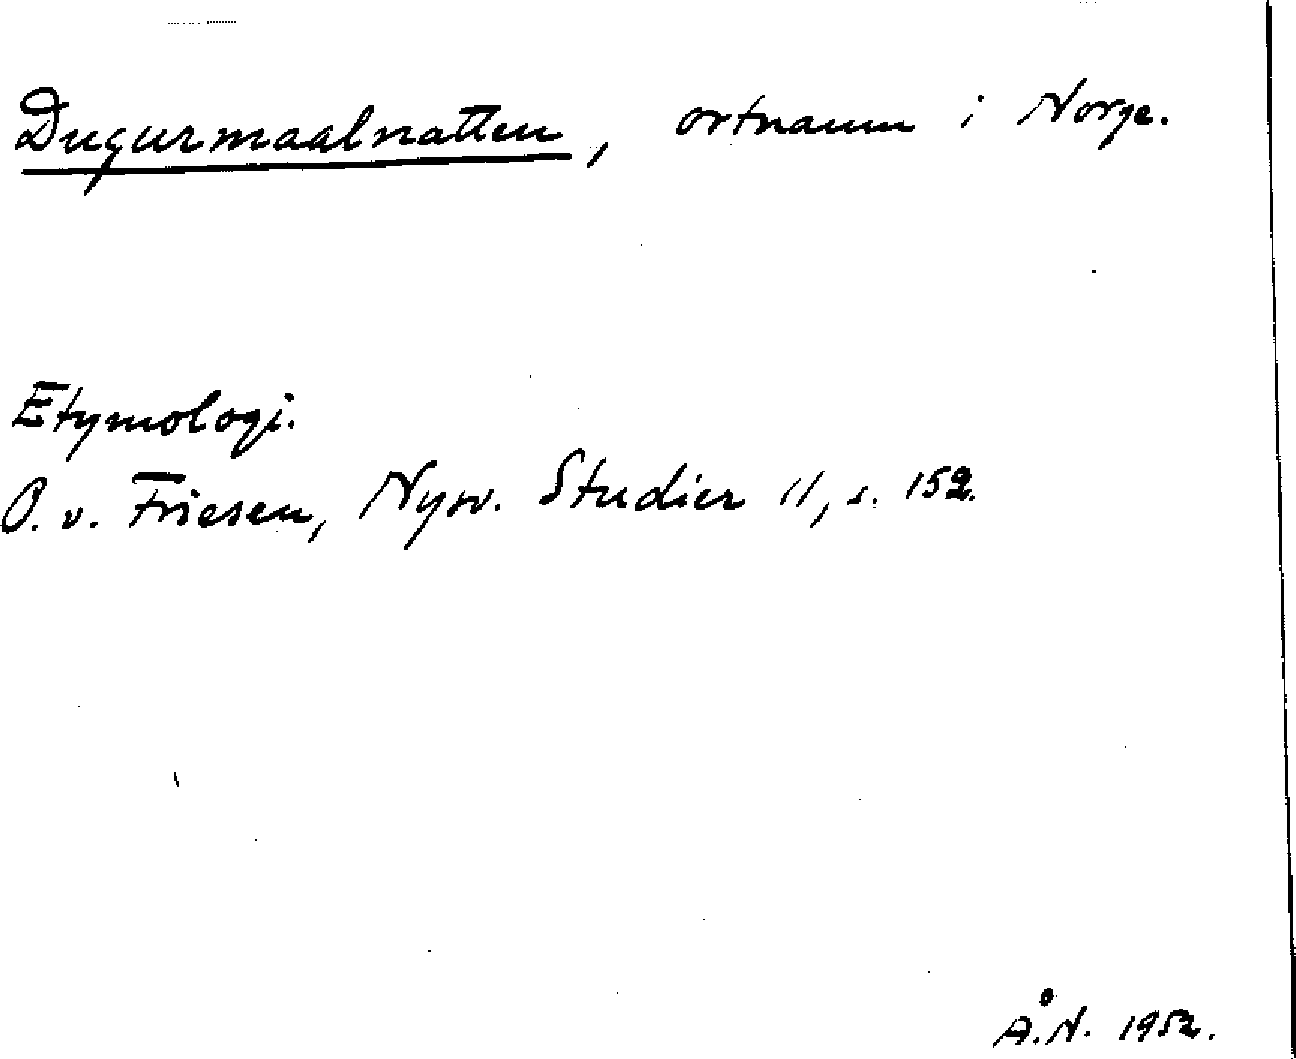 Dugurmaalnatten, ortnamn i Norge.
Etymologi.
O. v. Friesen, Nysv. Studier 11, s. 152.
Å.N. 1952.